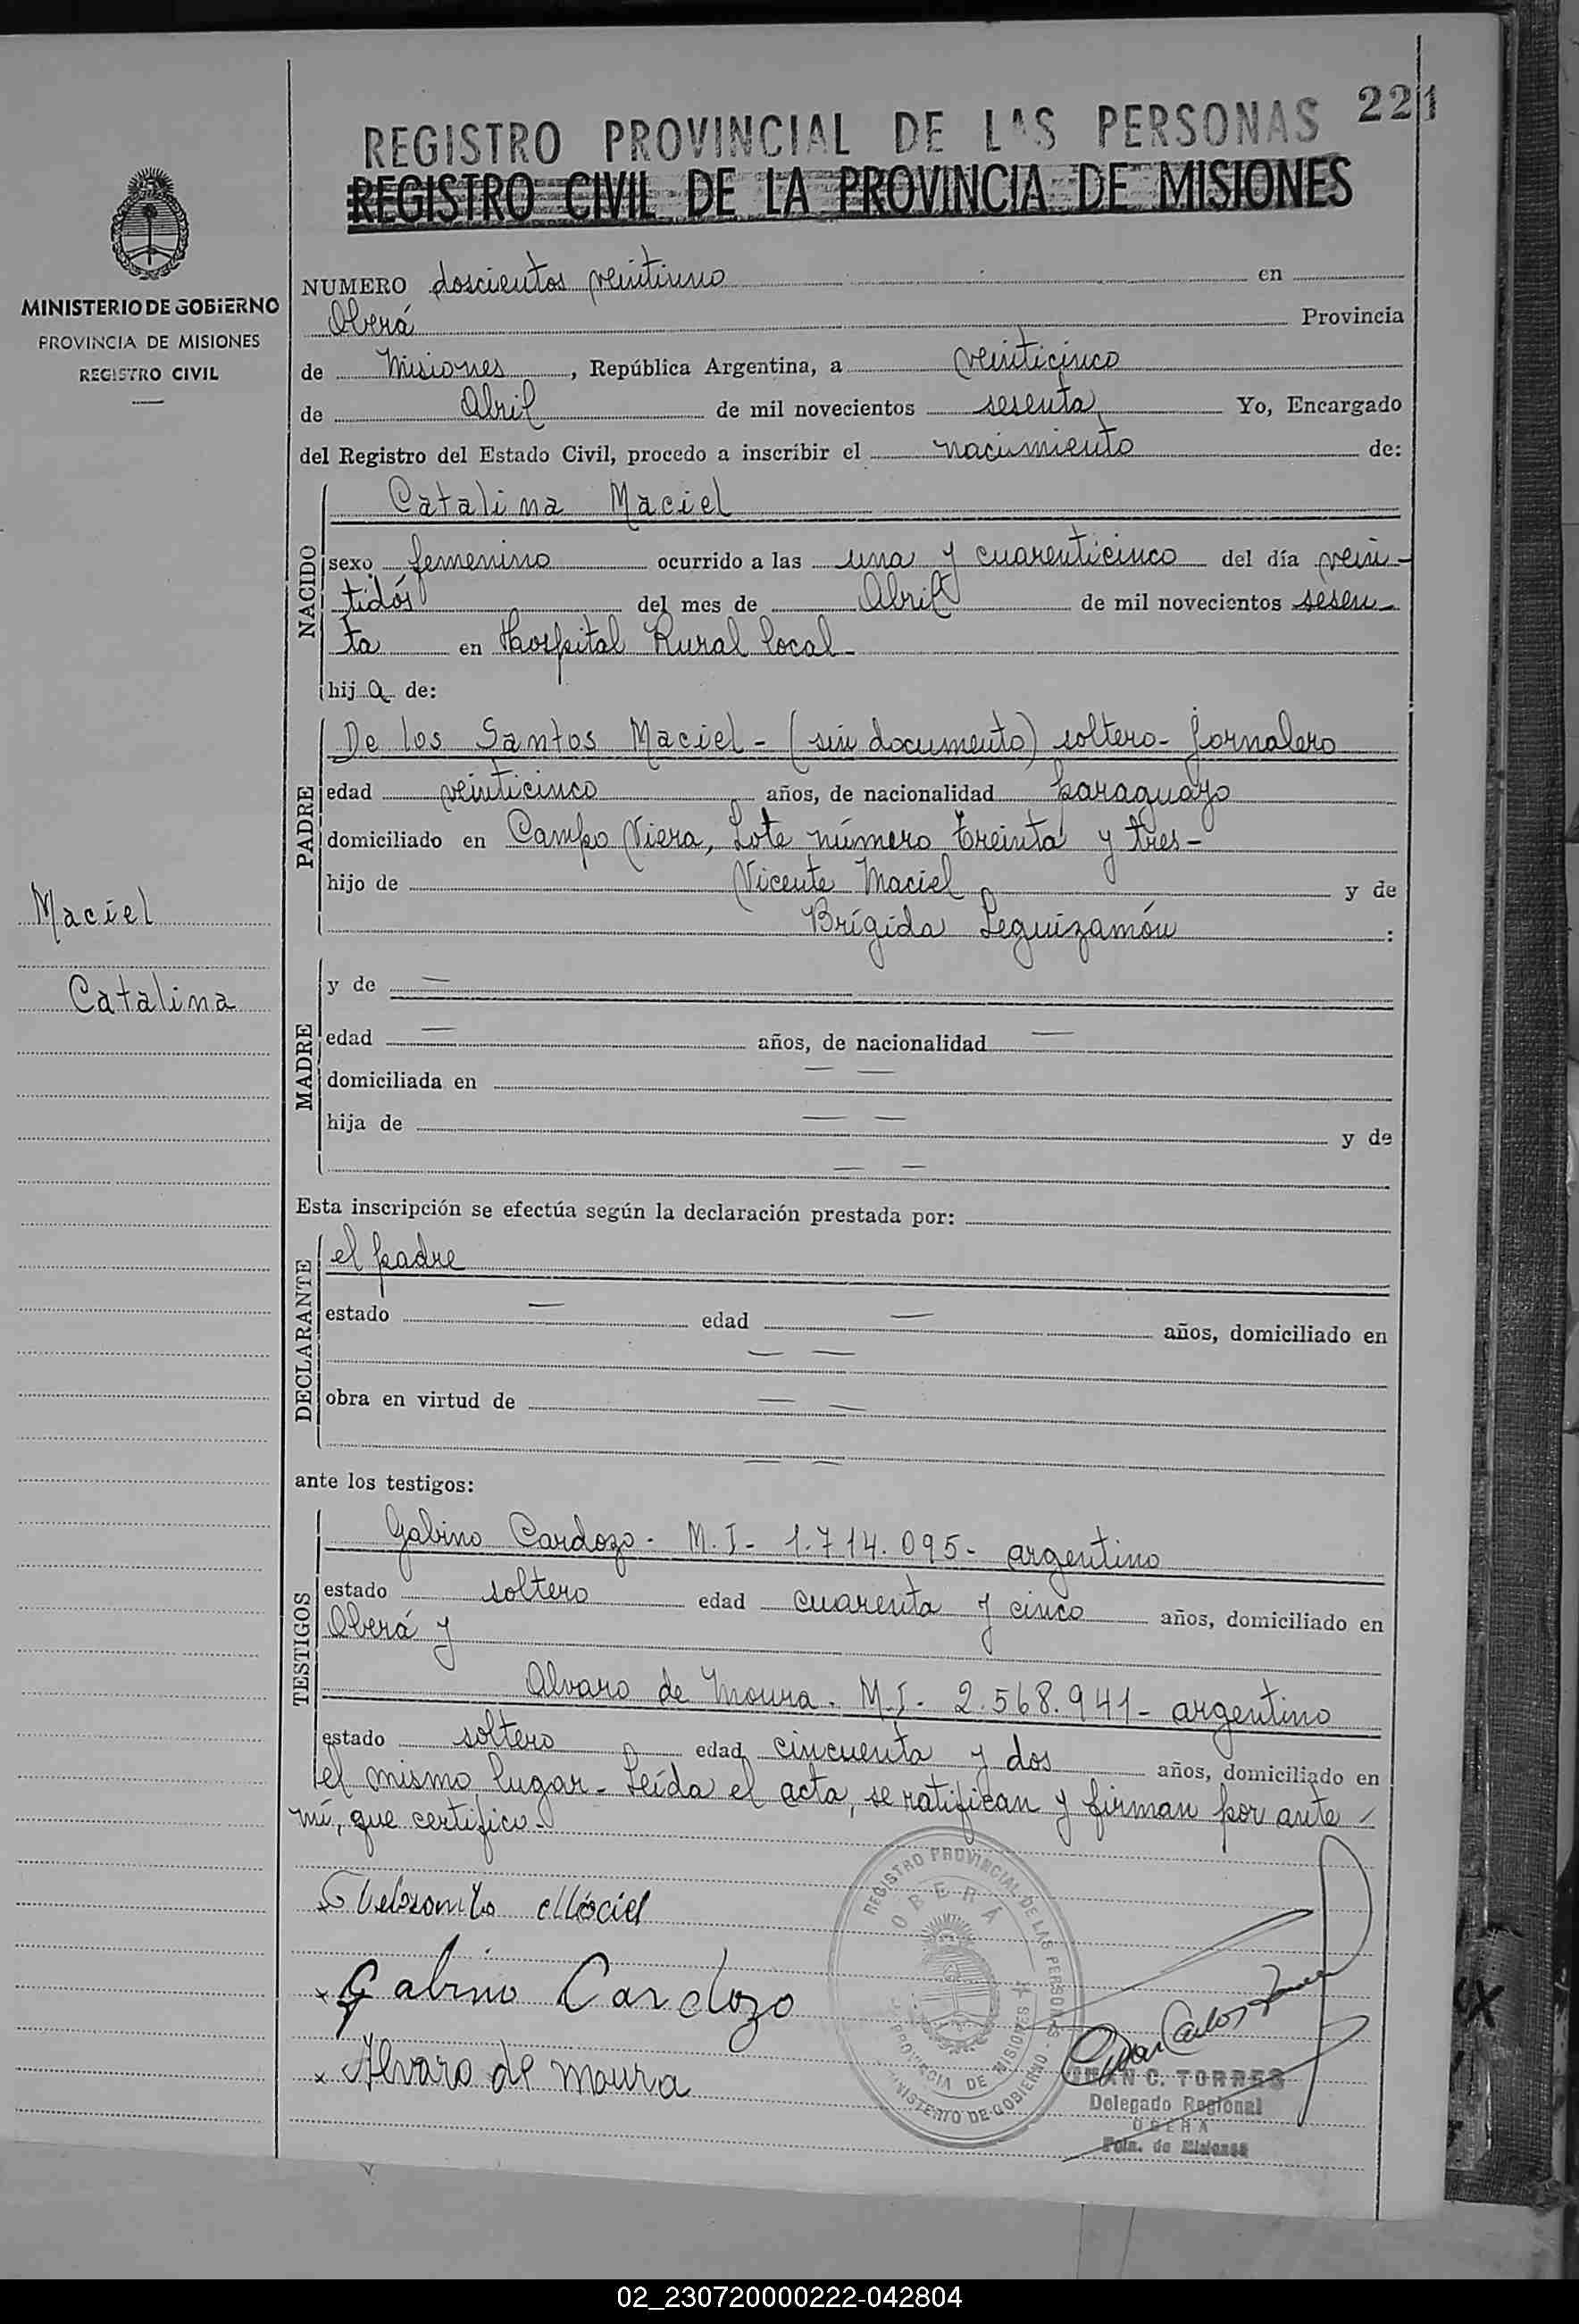 221
REGISTRO PROVINCIAL DE LAS PERSONAS
REGISTRO CIVIL DE LA PROVINCIA DE MISIONES
MINISTERIO DE GOBIERNO
PROVINCIA DE MISIONES
REGISTRO CIVIL
NUMERO doscientos veintiuno en
Oberá Provincia
de Misiones, República Argentina, a veinticinco
de Abril de mil novecientos sesenta Yo, Encargado
del Registro del Estado Civil, procedo a inscribir el nacimiento de:
NACIDO
Catalina Maciel
sexo femenino ocurrido a las una y cuarenticinco del día vein-
tidós del mes de Abril de mil novecientos sesen-
ta en Hospital Rural local-
hija de:
PADRE
De los Santos Maciel - (sin documento) soltero - jornalero
edad veinticinco años, de nacionalidad paraguayo
domiciliado en Campo Viera, Lote número treinta y tres-
hijo de Vicente Maciel y de
Brígida Leguizamón :
Maciel
Catalina
MADRE
y de —
edad — años, de nacionalidad —
domiciliada en — —
hija de — — y de
— —
Esta inscripción se efectúa según la declaración prestada por:
DECLARANTE
el padre
estado — edad — años, domiciliado en
— —
obra en virtud de — —
— —
ante los testigos:
TESTIGOS
Gabino Cardozo - M.I - 1.714.095 - argentino
estado soltero edad cuarenta y cinco años, domiciliado en
Oberá y
Alvaro de Moura - M.I - 2.568.941 - argentino
estado soltero edad cincuenta y dos años, domiciliado en
el mismo lugar - Leída el acta, se ratifican y firman por ante
mí, que certifico -
Maciel
x Gabino Cardozo
x Alvaro de moura
REGISTRO PROVINCIAL DE LAS PERSONAS
OBERÁ
PROVINCIA DE MISIONES
MINISTERIO DE GOBIERNO
Juan Carlos Torres
JUAN C. TORRES
Delegado Regional
OBERA
Pcia. de Misiones
02_230720000222-042804